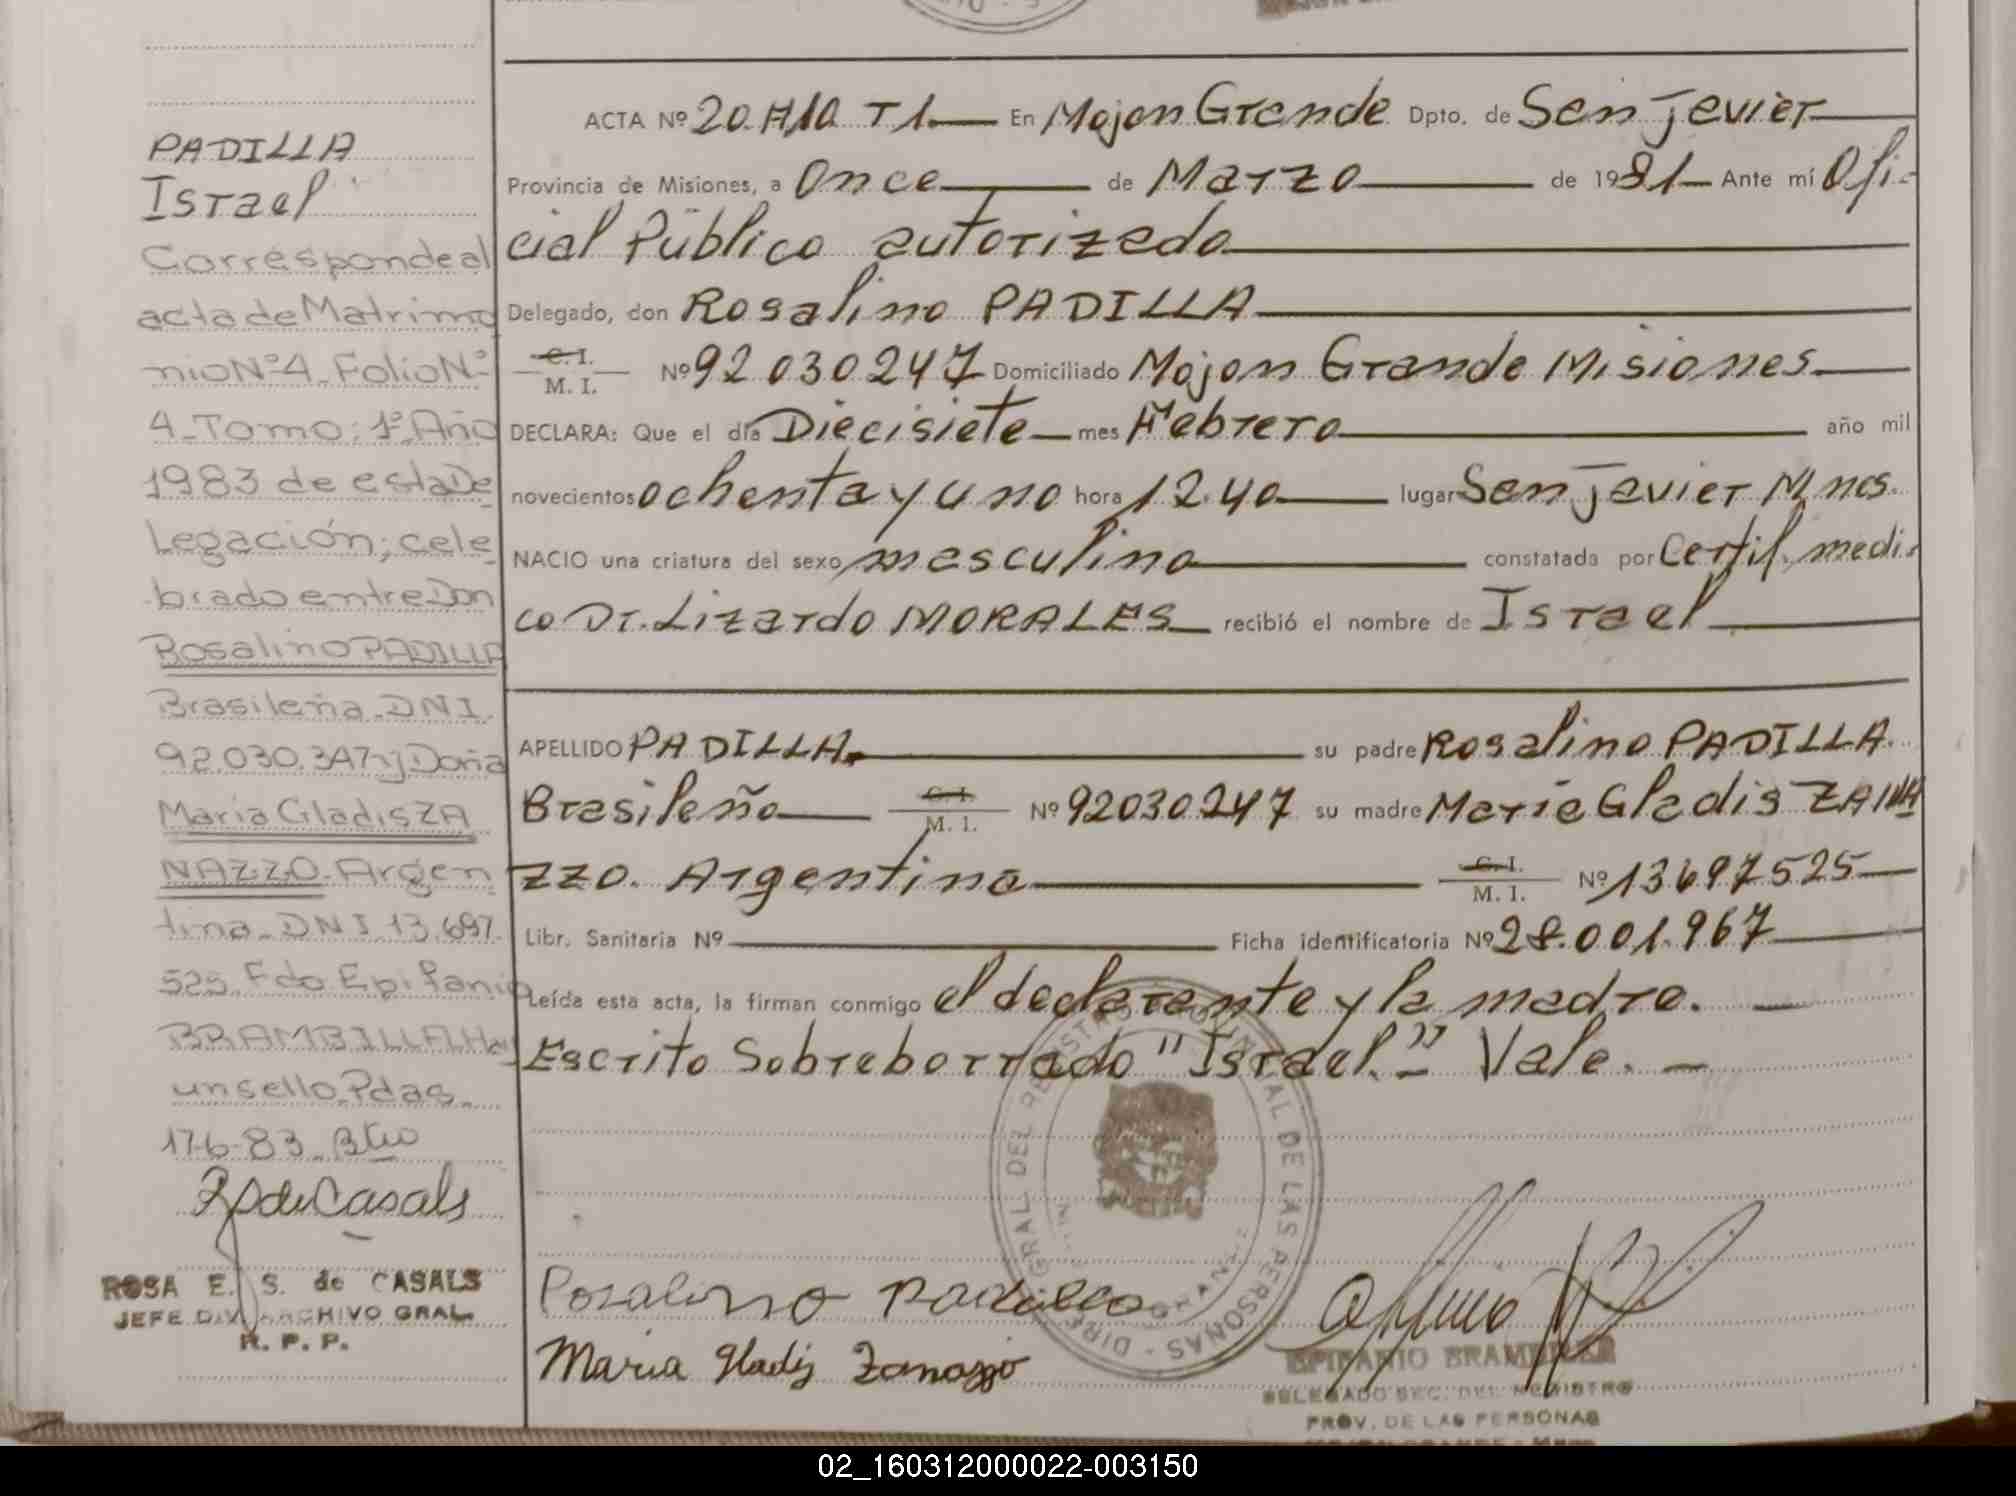 PADILLA
Israel
Corresponde al
acta de Matrimo
nio Nº 4. Folio Nº
4. Tomo: 1º. Año
1983 de esta De
legación; cele
brado entre Don
Rosalino PADILLA
Brasileña. DNI.
92.030.347 y Doña
Maria Gladis ZA
NAZZO. Argen
tina. DNI 13.697.
525. Fdo Epifanio
BRAMBILLA. Hay
un sello. Pdas.
17-6-83. Btro
R S de Casals
ROSA E. S. de CASALS
JEFE DIV. ARCHIVO GRAL.
R. P. P.
ACTA Nº 20. Fº 10. T 1. En Mojon Grande Dpto. de San Javier
Provincia de Misiones, a Once de Marzo de 1981 Ante mí Ofi-
cial Público autorizado
Delegado, don Rosalino PADILLA
C. I.
M. I. Nº 92 030 247 Domiciliado Mojon Grande Misiones
DECLARA: Que el día Diecisiete mes Febrero año mil
novecientos ochenta y uno hora 12.40 lugar San Javier Mnes.
NACIO una criatura del sexo masculino constatada por Certif. medi-
co Dr. Lizardo MORALES recibió el nombre de Israel
APELLIDO PADILLA. su padre Rosalino PADILLA.
Brasileño C. I. M. I. Nº 92030247 su madre Maria Gladis ZANA
ZZO. Argentina C. I. M. I. Nº 13697525
Libr. Sanitaria Nº Ficha identificatoria Nº 28.001.967
Leída esta acta, la firman conmigo el declarante y la madre.
Escrito Sobreborrado "Israel." Vale.
Rosalino Padilla
Maria Gladis Zanazzo
DIRECCION GRAL DEL REGISTRO PROVINCIAL DE LAS PERSONAS
EPIFANIO BRAMBILLA
DELEGADO SEC. DEL REGISTRO
PROV. DE LAS PERSONAS
MOJON GRANDE - Mnes
02_160312000022-003150